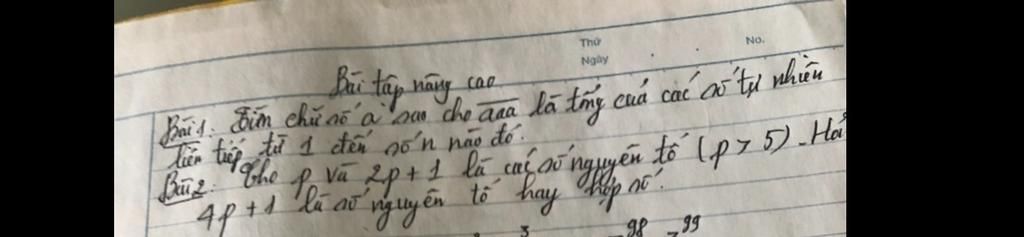 Thứ
No.
Ngày
Bài tập nâng cao
Bài 1: Tìm chữ số a sao cho aaa là tổng của các số tự nhiên
liên tiếp từ 1 đến số n nào đó.
Bài 2: Cho p và 2p + 1 là các số nguyên tố (p > 5). Hỏi
4p + 1 là số nguyên tố hay hợp số.
3 98 99